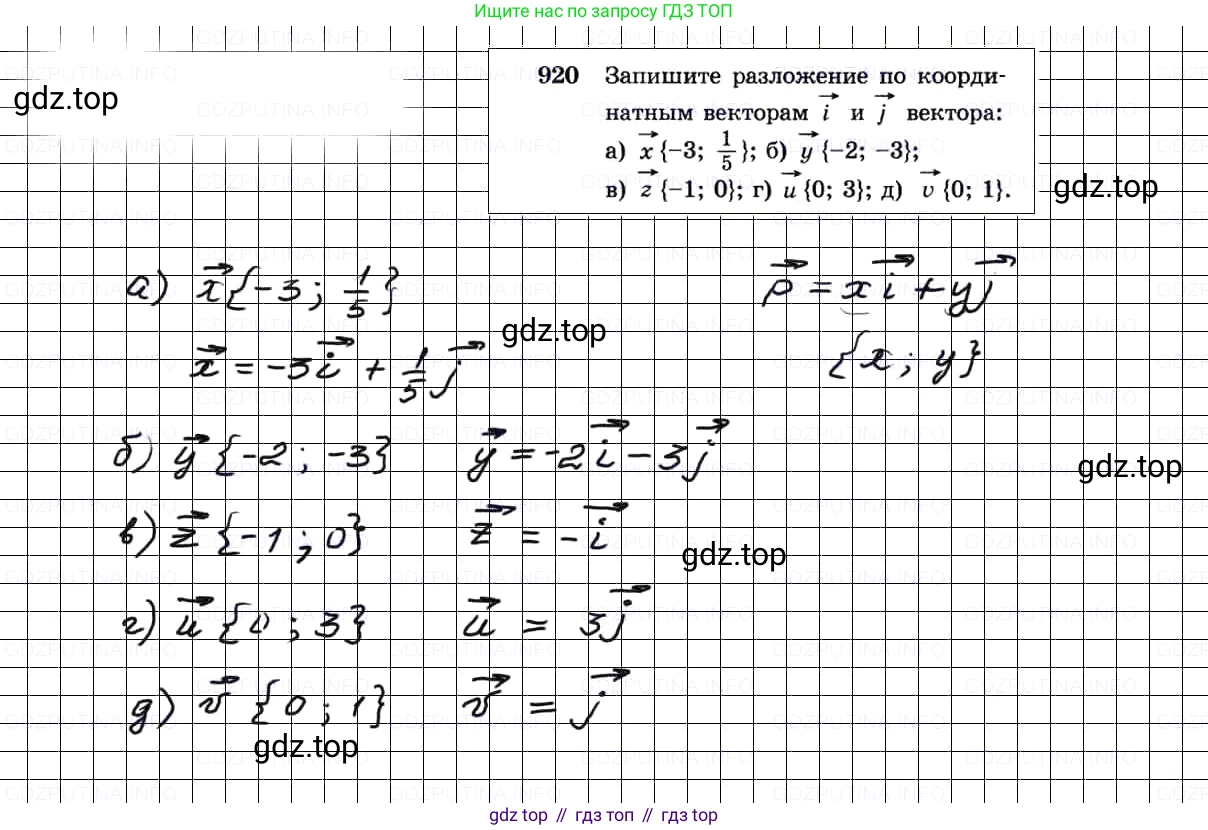 Ищите нас по запросу ГДЗ ТОП
920 Запишите разложение по коорди-
натным векторам i и j вектора:
а) x {−3; 1/5}; б) y {−2; −3};
в) z {−1; 0}; г) u {0; 3}; д) v {0; 1}.
gdz.top
gdz.top
а) x{-3; 1/5} p = xi + yj
gdz.top
x = -3i + 1/5 j {x; y}
б) y {-2; -3} y = -2i - 3j
gdz.top
в) z {-1; 0} z = -i
gdz.top
г) u {0; 3} u = 3j
д) v {0; 1} v = j
gdz.top
gdz top // гдз топ // gdz top
GDZPUTINA.INFO